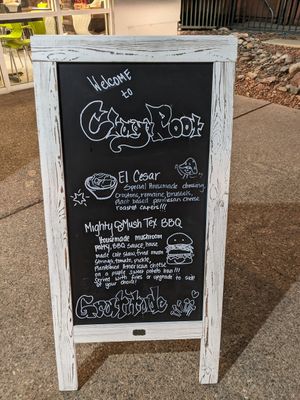 Welcome
to
Clay Poot
El Cesar
Special Housemade dressing,
Croutons, romaine, brussels,
plant based parmesan cheese
roasted capers!!!
Mighty Mush Tex BBQ
Housemade mushroom
patty, BBQ sauce, house
made cole slaw, fried onion
strings, tomato, pickle,
Plantbased American cheese
on a purple sweet potato bun!!!
Served with fries or upgrade to side
of your choice!
Gratitude